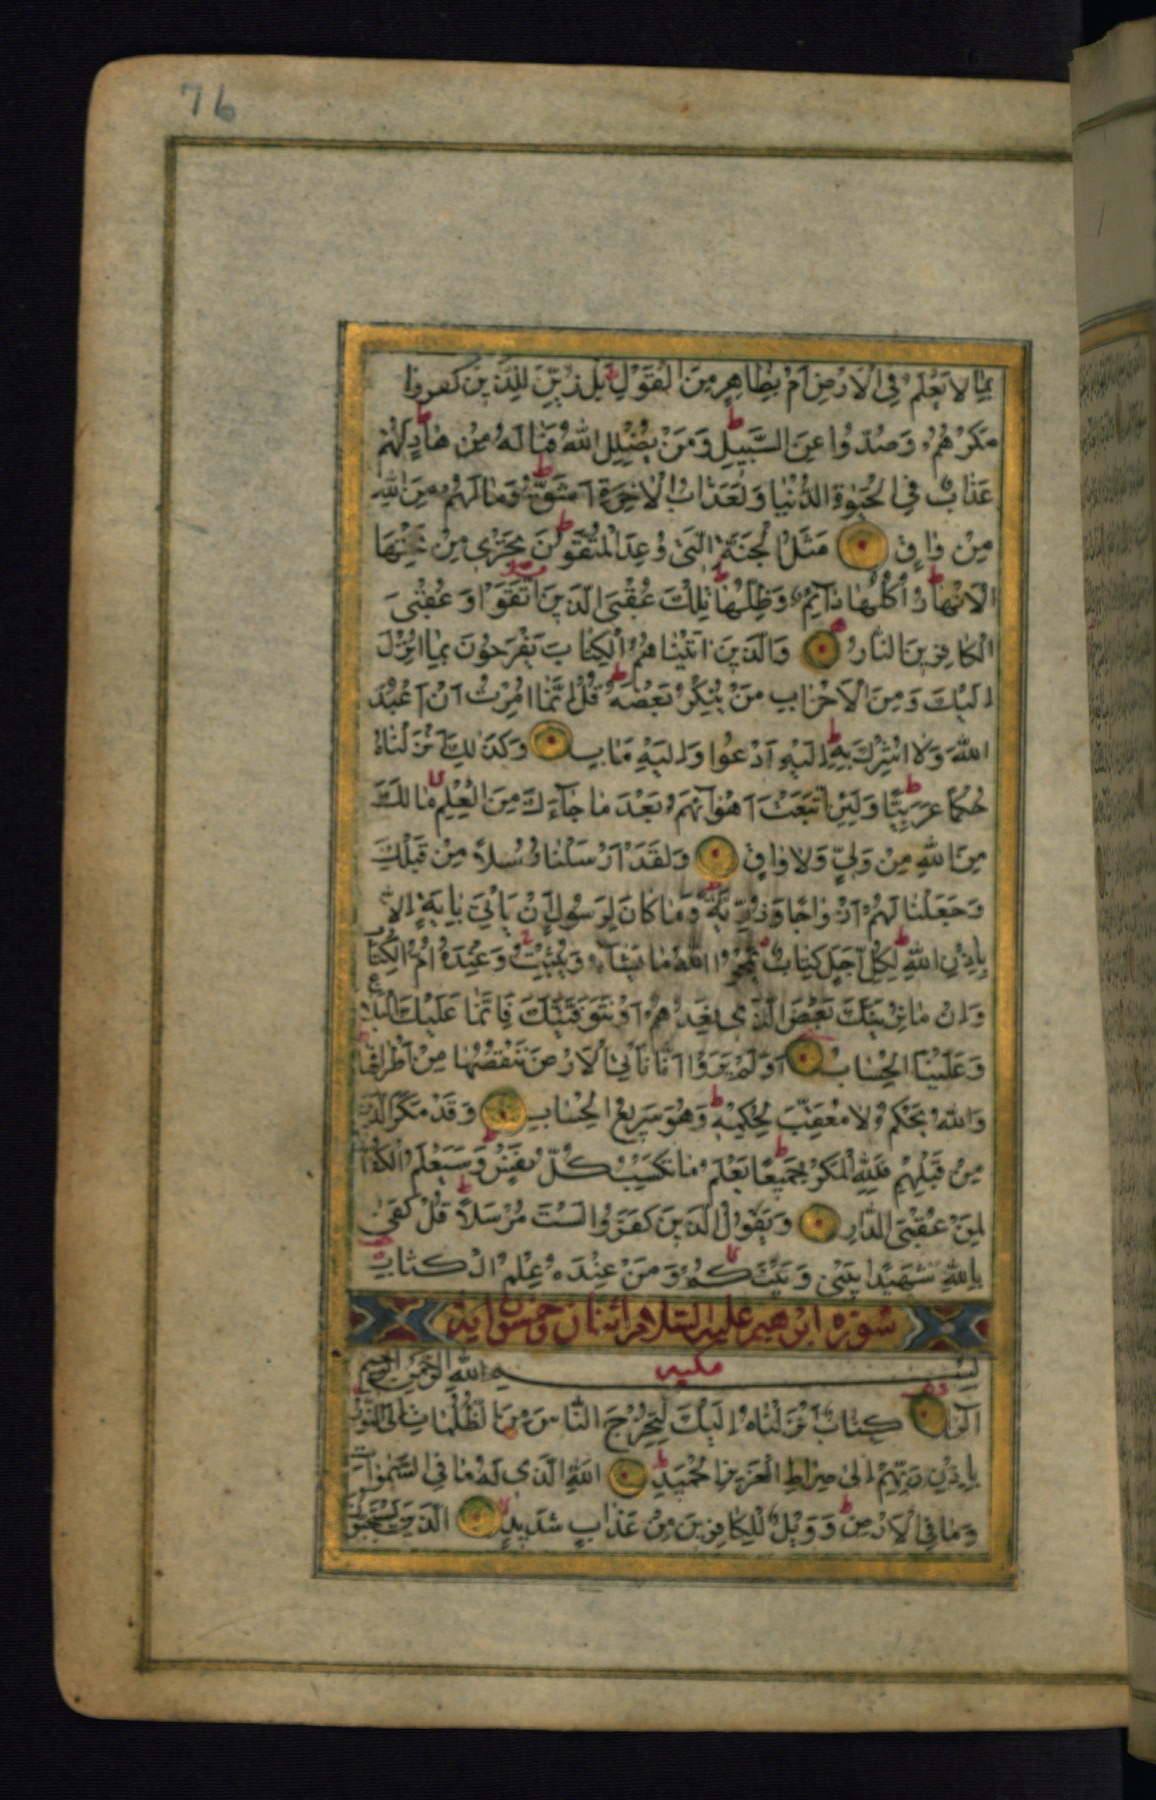 76
بِمَا لَا يَعْلَمُ فِي الْاَرْضِ اَمْ بِظَاهِرٍ مِنَ الْقَوْلِ بَلْ زُيِّنَ لِلَّذِينَ كَفَرُوا
مَكْرُهُمْ وَصُدُّوا عَنِ السَّبِيلِ وَمَنْ يُضْلِلِ اللّٰهُ فَمَا لَهُ مِنْ هَادٍ لَهُمْ
عَذَابٌ فِي الْحَيٰوةِ الدُّنْيَا وَلَعَذَابُ الْاٰخِرَةِ اَشَقُّ وَمَا لَهُمْ مِنَ اللّٰهِ
مِنْ وَاقٍ مَثَلُ الْجَنَّةِ الَّتِي وُعِدَ الْمُتَّقُونَ تَجْرِي مِنْ تَحْتِهَا
الْاَنْهَارُ اُكُلُهَا دَآئِمٌ وَظِلُّهَا تِلْكَ عُقْبَى الَّذِينَ اتَّقَوْا وَعُقْبَى
الْكَافِرِينَ النَّارُ وَالَّذِينَ اٰتَيْنَاهُمُ الْكِتَابَ يَفْرَحُونَ بِمَا اُنْزِلَ
اِلَيْكَ وَمِنَ الْاَحْزَابِ مَنْ يُنْكِرُ بَعْضَهُ قُلْ اِنَّمَا اُمِرْتُ اَنْ اَعْبُدَ
اللّٰهَ وَلَا اُشْرِكَ بِهِ اِلَيْهِ اَدْعُوا وَاِلَيْهِ مَاٰبِ وَكَذٰلِكَ اَنْزَلْنَاهُ
حُكْمًا عَرَبِيًّا وَلَئِنِ اتَّبَعْتَ اَهْوَآئَهُمْ بَعْدَ مَا جَآءَكَ مِنَ الْعِلْمِ مَا لَكَ
مِنَ اللّٰهِ مِنْ وَلِيٍّ وَلَا وَاقٍ وَلَقَدْ اَرْسَلْنَا رُسُلًا مِنْ قَبْلِكَ
وَجَعَلْنَا لَهُمْ اَزْوَاجًا وَذُرِّيَّةً وَمَا كَانَ لِرَسُولٍ اَنْ يَاْتِيَ بِاٰيَةٍ اِلَّا
بِاِذْنِ اللّٰهِ لِكُلِّ اَجَلٍ كِتَابٌ يَمْحُوا اللّٰهُ مَا يَشَآءُ وَيُثْبِتُ وَعِنْدَهُ اُمُّ الْكِتَابِ
وَاِنْ مَا نُرِيَنَّكَ بَعْضَ الَّذِي نَعِدُهُمْ اَوْ نَتَوَفَّيَنَّكَ فَاِنَّمَا عَلَيْكَ الْبَلَاغُ
وَعَلَيْنَا الْحِسَابُ اَوَلَمْ يَرَوْا اَنَّا نَاْتِي الْاَرْضَ نَنْقُصُهَا مِنْ اَطْرَافِهَا
وَاللّٰهُ يَحْكُمُ لَا مُعَقِّبَ لِحُكْمِهِ وَهُوَ سَرِيعُ الْحِسَابِ وَقَدْ مَكَرَ الَّذِينَ
مِنْ قَبْلِهِمْ فَلِلّٰهِ الْمَكْرُ جَمِيعًا يَعْلَمُ مَا تَكْسِبُ كُلُّ نَفْسٍ وَسَيَعْلَمُ الْكُفَّارُ
لِمَنْ عُقْبَى الدَّارِ وَيَقُولُ الَّذِينَ كَفَرُوا لَسْتَ مُرْسَلًا قُلْ كَفٰى
بِاللّٰهِ شَهِيدًا بَيْنِي وَبَيْنَكُمْ وَمَنْ عِنْدَهُ عِلْمُ الْكِتَابِ
سورة ابرهيم عليه السلام اثنان وخمسون اية
مكية
بِسْمِ اللّٰهِ الرَّحْمٰنِ الرَّحِيمِ
الٓرٰ كِتَابٌ اَنْزَلْنَاهُ اِلَيْكَ لِتُخْرِجَ النَّاسَ مِنَ الظُّلُمَاتِ اِلَى النُّورِ
بِاِذْنِ رَبِّهِمْ اِلٰى صِرَاطِ الْعَزِيزِ الْحَمِيدِ اللّٰهِ الَّذِي لَهُ مَا فِي السَّمٰوَاتِ
وَمَا فِي الْاَرْضِ وَوَيْلٌ لِلْكَافِرِينَ مِنْ عَذَابٍ شَدِيدٍ الَّذِينَ يَسْتَحِبُّونَ